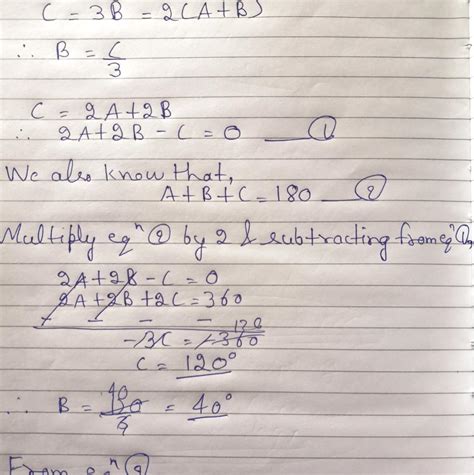 C = 3B = 2(A+B)
∴ B = C/3
C = 2A+2B
∴ 2A+2B - C = 0 ——— ①
We also know that,
A+B+C = 180 —— ②
Multiply eqⁿ ② by 2 & subtracting from eqⁿ ①,
2A+2B - C = 0
2A+2B+2C = 360
- - - -
-3C = -360 120
C = 120°
∴ B = 120/3 40 = 40°
From eqⁿ ②